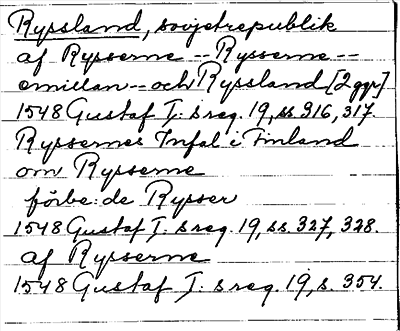 Ryssland, sovjetrepublik
af Rysserne -- Rysserne --
emillan -- och Ryssland [2 ggr]
1548 Gustaf I: s reg. 19, ss. 316, 317.
Ryssernes Infal i Finland
om Rysserne
förbe: de Rysser
1548 Gustaf I: s reg. 19, ss. 327, 328.
af Rysserne
1548 Gustaf I: s reg. 19, s. 354.